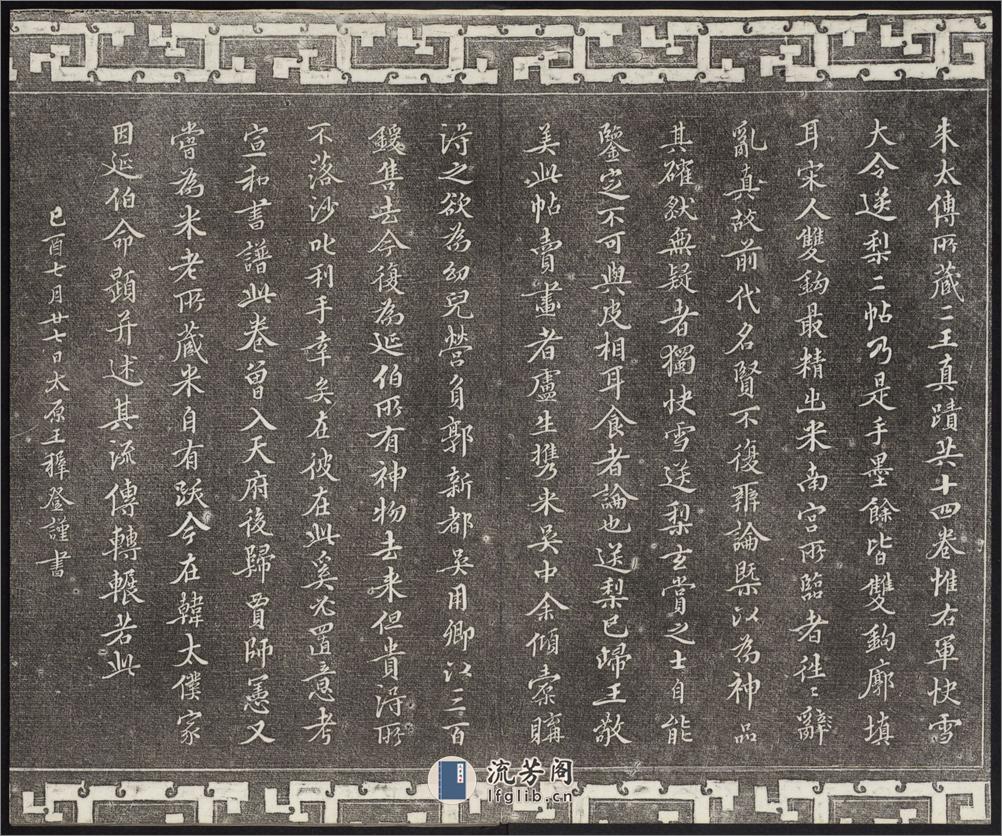 朱太傅所藏二王真蹟共十四卷惟右軍快雪
大令送梨二帖乃是手墨餘皆雙鉤廓填
耳宋人雙鉤最精出米南宮所臨者往〻
亂真故前代名賢不復辨論槩以為神品
其確然無疑者獨快雪送梨玄賞之士自能
鑒定不可與皮相耳食者論也送梨已歸王敬
美此帖賣畫者盧生攜來吳中余傾橐購
得之欲為幼兒營負郭新都吳用卿以三百
鍰售去今復為延伯所有神物去來但貴得所
不落沙叱利手幸矣在彼在此奚必置意考
宣和書譜此卷曾入天府後歸賈師憲又
嘗為米老所藏米自有跋今在韓太僕家
因延伯命題并述其流傳轉輾若此
己酉七月廿七日太原王穉登謹書
流芳阁
lfglib.cn